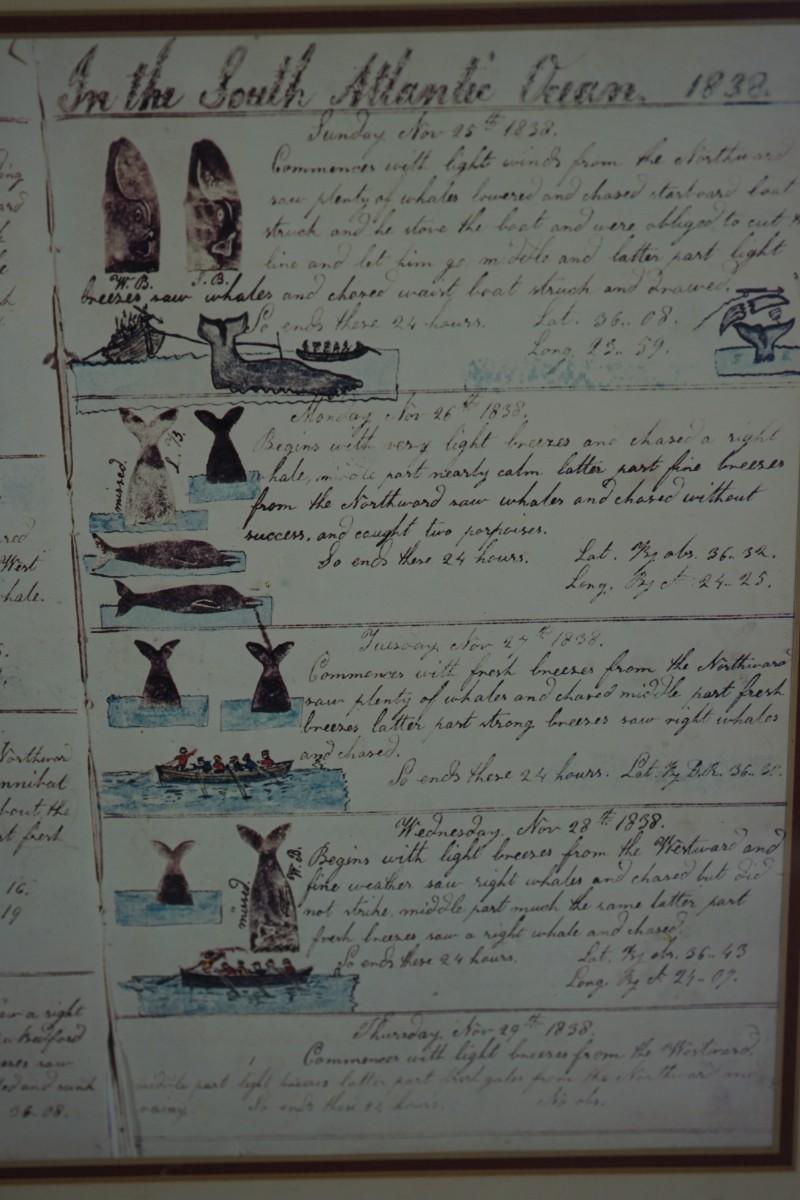 In the South Atlantic Ocean. 1838.
Sunday Nov 25th 1838.
Commences with light winds from the Northward
saw plenty of whales lowered and chased starboard boat
struck and he stove the boat and were obliged to cut
line and let him go middle and latter part light
W. B.
breezes saw whales and chased waist boat struck and drawed.
So ends these 24 hours. Lat. 36.. 08.
Long. 23.. 59.
Monday Nov 26th 1838.
Begins with very light breezes and chased a right
whale, middle part nearly calm latter part fine breezes
missed
L. B.
from the Northward saw whales and chased without
success, and caught two porpoises.
So ends these 24 hours. Lat. By obs. 36.. 32.
Long. By ct 24.. 25.
Tuesday Nov 27th 1838.
Commences with fresh breezes from the Northward
saw plenty of whales and chased middle part fresh
breezes latter part strong breezes saw right whales
and chased.
So ends these 24 hours. Lat. By D.R. 36..
Wednesday. Nov 28th 1838.
Begins with light breezes from the Westward and
fine weather saw right whales and chased but did
missed
W. B.
not strike, middle part much the same latter part
fresh breezes saw a right whale and chased.
So ends these 24 hours. Lat. By obs. 36.. 43
Long. By ct 24.. 07.
Thursday. Nov 29th 1838.
Commences with light breezes from the Westward.
middle part light breezes latter part fresh gales from the Northward and
rainy. So ends these 24 hours. No obs.
West
whale.
about the
fresh
16.
19
a right
saw
and sunk
36.. 08.